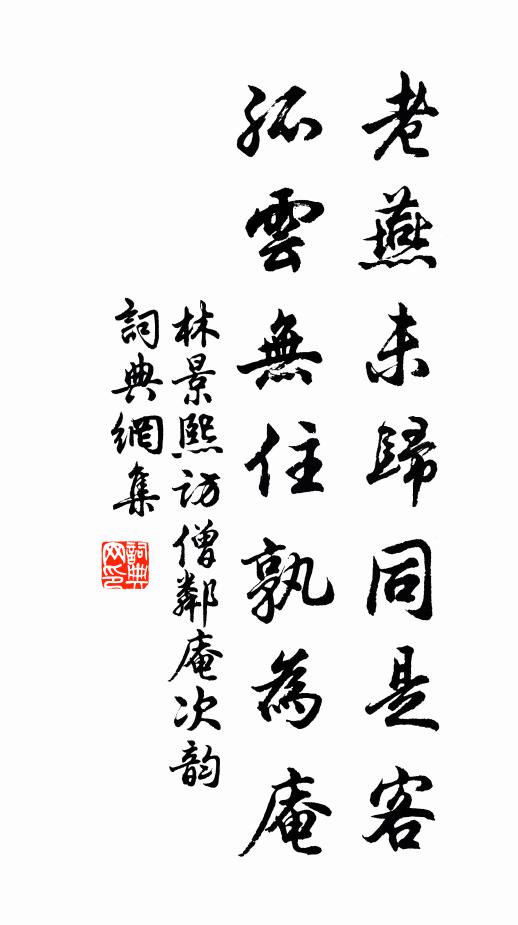 老燕未歸同是客
孤雲無住孰為庵
林景熙訪僧鄰庵次韵
詞典網集
詞典
网印